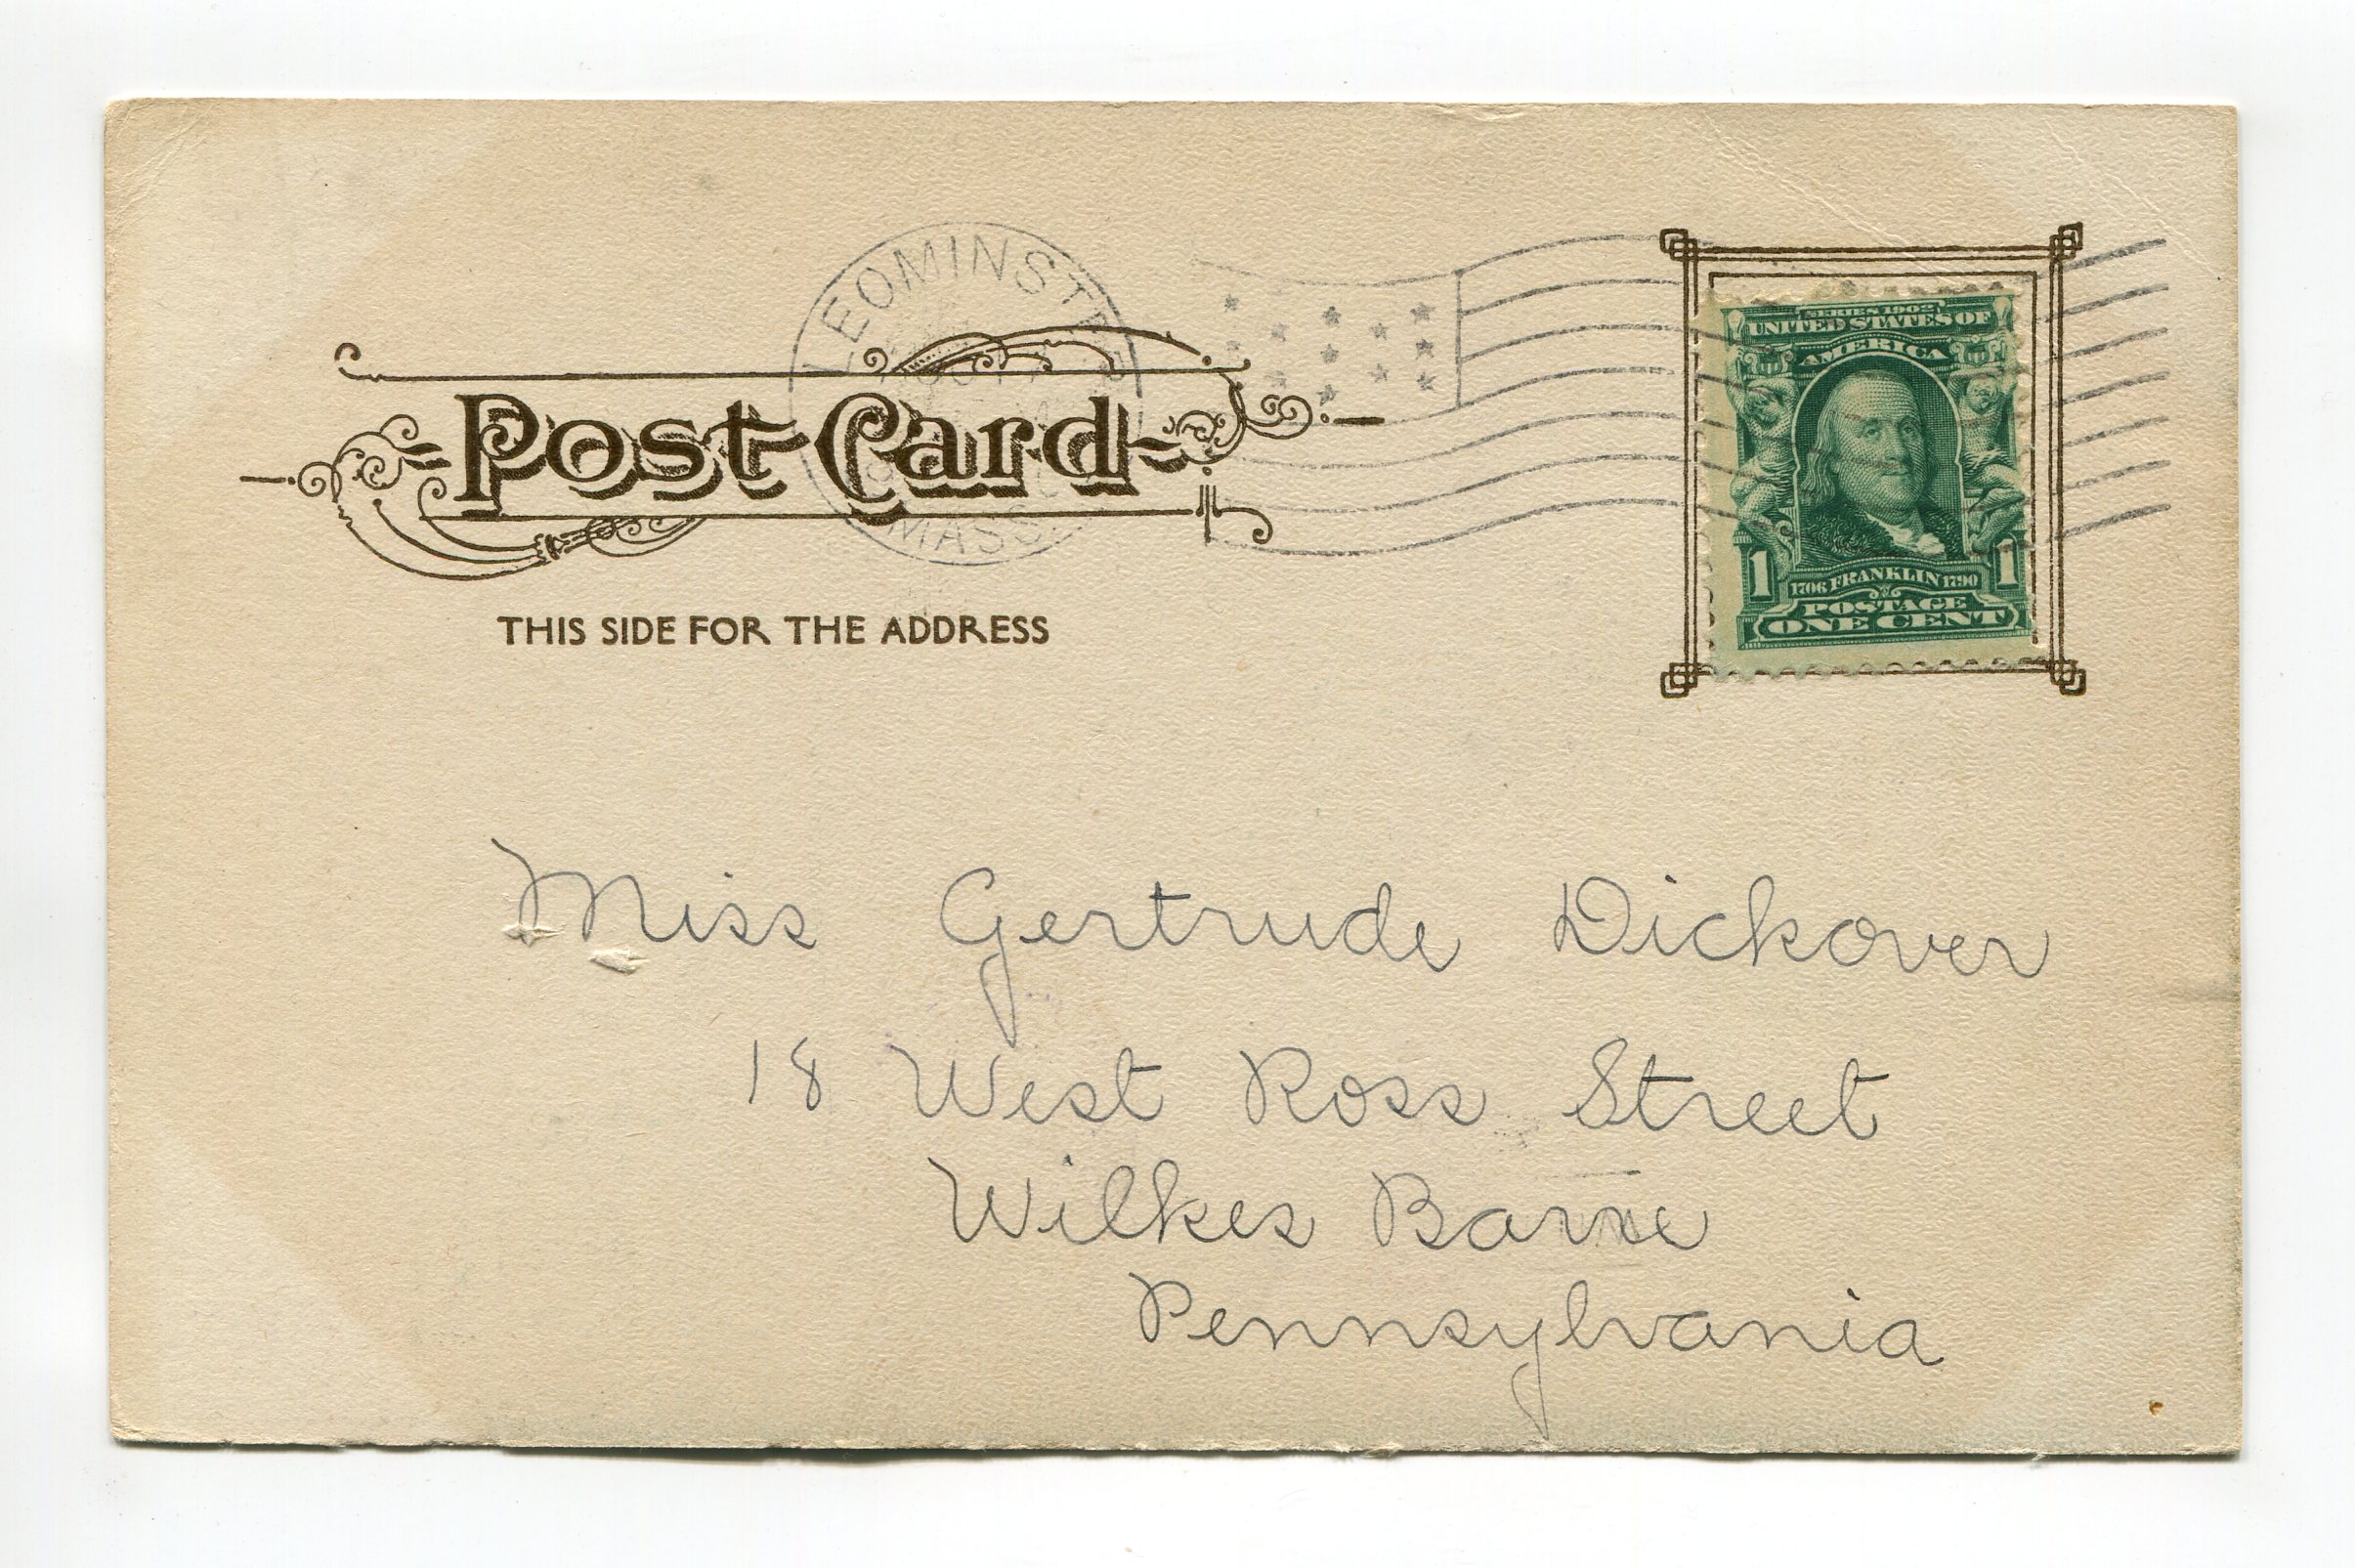 LEOMINSTER
MASS.
SERIES 1902
UNITED STATES OF
AMERICA
1 1706 FRANKLIN 1790 1
POSTAGE
ONE CENT
Post Card
THIS SIDE FOR THE ADDRESS
Miss Gertrude Dickover
18 West Ross Street
Wilkes Barre
Pennsylvania